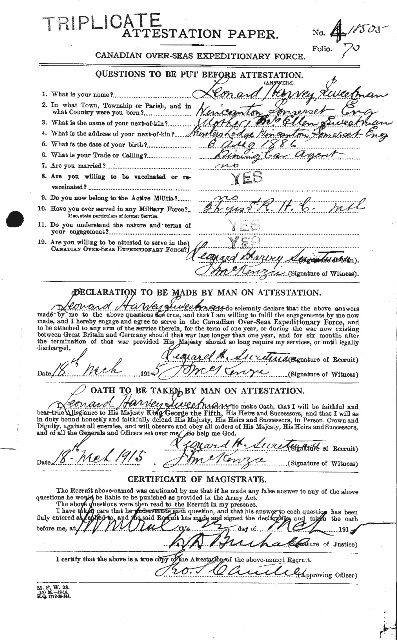 TRIPLICATE
ATTESTATION PAPER.
No. 418505
Folio. 70
CANADIAN OVER-SEAS EXPEDITIONARY FORCE.
QUESTIONS TO BE PUT BEFORE ATTESTATION.
(ANSWERS)
1. What is your name? Leonard Harvey Sweetman
2. In what Town, Township or Parish, and in
what Country were you born? Wincanton Somerset Eng
3. What is the name of your next-of-kin? Mother Mrs Ellen Sweetman
4. What is the address of your next-of-kin? Lodge Wincanton Somerset Eng
5. What is the date of your birth? 6 Aug 1886
6. What is your Trade or Calling? Dining Car Agent
7. Are you married? no
8. Are you willing to be vaccinated or re-
vaccinated? YES
9. Do you now belong to the Active Militia? no
10. Have you ever served in any Military Force? R. H. C. Mtl
If so, state particulars of former Service.
11. Do you understand the nature and terms of
your engagement? YES
12. Are you willing to be attested to serve in the
CANADIAN OVER-SEAS EXPEDITIONARY FORCE? YES
Leonard Harvey Sweetman
J McKenzie (Signature of Witness)
DECLARATION TO BE MADE BY MAN ON ATTESTATION.
I, Leonard Harvey Sweetman, do solemnly declare that the above answers
made by me to the above questions are true, and that I am willing to fulfil the engagements by me now
made, and I hereby engage and agree to serve in the Canadian Over-Seas Expeditionary Force, and
to be attached to any arm of the service therein, for the term of one year, or during the war now existing
between Great Britain and Germany should that war last longer than one year, and for six months after
the termination of that war provided His Majesty should so long require my services, or until legally
discharged.
Leonard H. Sweetman (Signature of Recruit)
Date 18th Mch 1915 J McKenzie (Signature of Witness)
OATH TO BE TAKEN BY MAN ON ATTESTATION.
I, Leonard Harvey Sweetman, do make Oath, that I will be faithful and
bear true Allegiance to His Majesty King George the Fifth, His Heirs and Successors, and that I will as
in duty bound honestly and faithfully defend His Majesty, His Heirs and Successors, in Person, Crown and
Dignity, against all enemies, and will observe and obey all orders of His Majesty, His Heirs and Successors,
and of all the Generals and Officers set over me. So help me God.
Leonard H Sweetman (Signature of Recruit)
Date 18th Mch 1915 J McKenzie (Signature of Witness)
CERTIFICATE OF MAGISTRATE.
The Recruit above-named was cautioned by me that if he made any false answer to any of the above
questions he would be liable to be punished as provided in the Army Act.
The above questions were then read to the Recruit in my presence.
I have taken care that he understands each question, and that his answer to each question has been
duly entered as replied to, and the said Recruit has made and signed the declaration and taken the oath
before me, at Montreal this day of 1915
(Signature of Justice)
I certify that the above is a true copy of the Attestation of the above-named Recruit.
(Approving Officer)